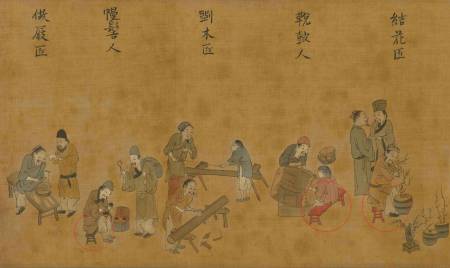 結花匠
鞔鼓人
木匠
髻人
做屐匠